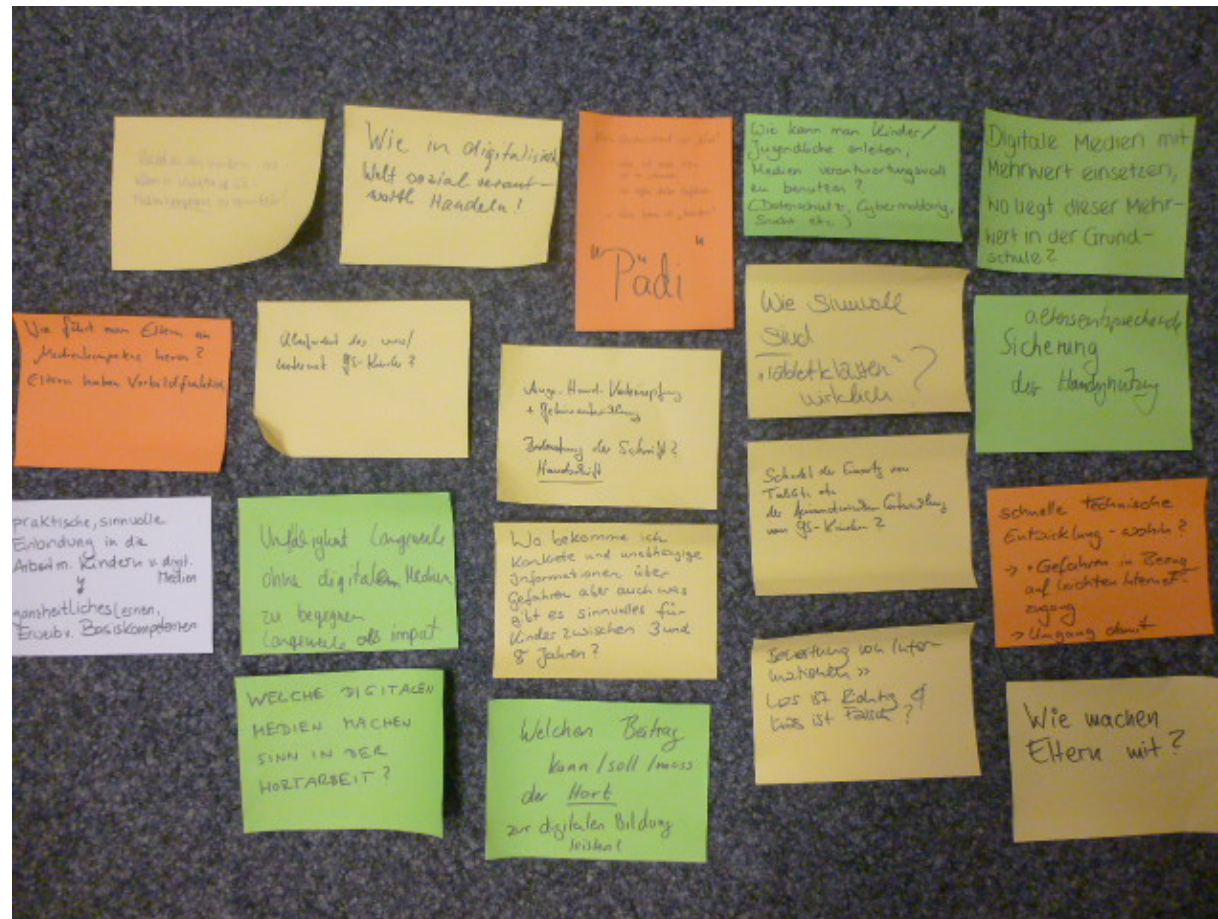 Wie in digitalisiert
Welt sozial verant-
wortl Handeln!
"Pädi"
Wie kann man Kinder/
Jugendliche anleiten,
Medien verantwortungsvoll
zu benutzen?
(Datenschutz, Cybermobbing,
Sucht etc.)
Digitale Medien mit
Mehrwert einsetzen,
wo liegt dieser Mehr-
wert in der Grund-
schule?
Wie führt man Eltern an
Medienkompetenz heran?
Eltern haben Vorbildfunktion
Überfordert das
GS-Kinder?
Auge-Hand-Verknüpfung
+ Gehirnentwicklung
Bedeutung der Schrift?
Handschrift
Wie sinnvoll
sind
"Tabletklassen"
wirklich?
altersentsprechende
Sicherung
der Handynutzung
praktische, sinnvolle
Einbindung in die
Arbeit m. Kindern v. digit.
Medien
ganzheitliches Lernen,
Erwerb v. Basiskompetenzen
Unfähigkeit Langeweile
ohne digitalen Medien
zu begegnen
Langeweile als imput
Wo bekomme ich
konkrete und unabhängige
Informationen über
Gefahren aber auch was
gibt es sinnvolles für
Kinder zwischen 3 und
8 Jahren?
Schadet der Einsatz von
Tablets etc
der Entwicklung
von GS-Kindern?
schnelle technische
Entwicklung - wohin?
-> • Gefahren in Bezug
auf leichten Internet-
zugang
> Umgang damit
WELCHE DIGITALEN
MEDIEN MACHEN
SINN IN DER
HORTARBEIT?
Welchen Beitrag
kann/soll/muss
der Hort
zur digitalen Bildung
leisten!
Bewertung von Infor-
mationen >>
Was ist Richtig &
Was ist Falsch?
Wie machen
Eltern mit?